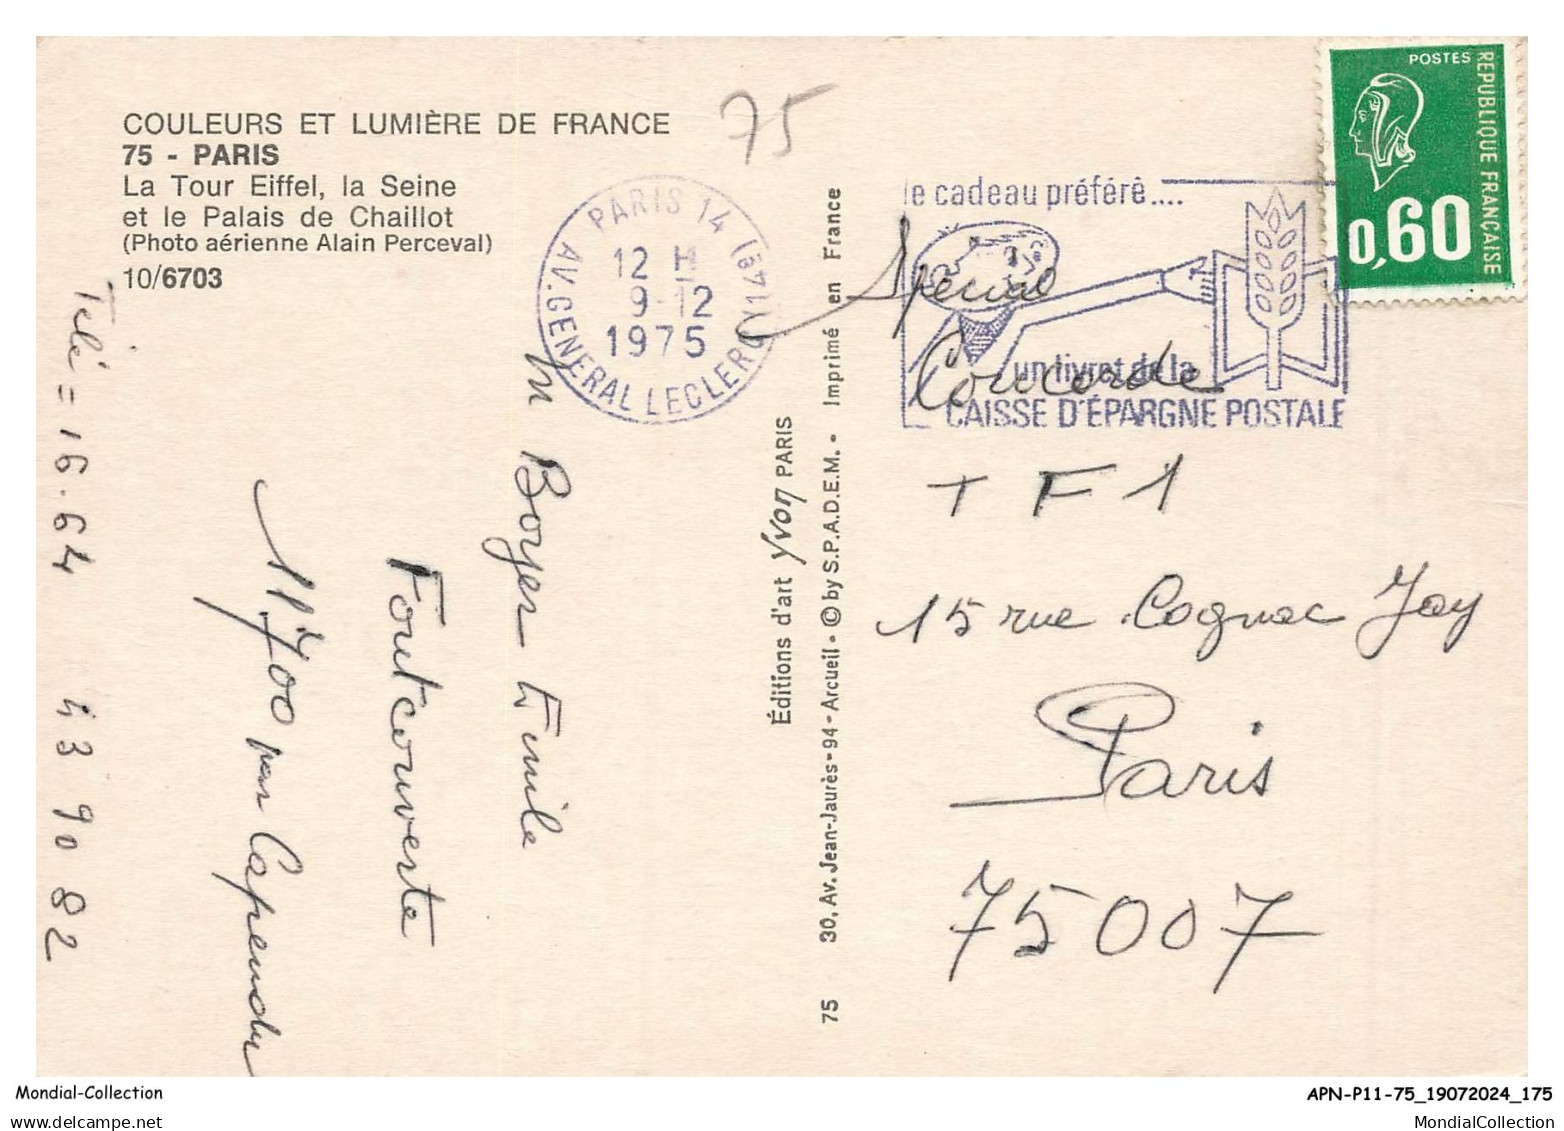 COULEURS ET LUMIÈRE DE FRANCE
75 - PARIS
La Tour Eiffel, la Seine
et le Palais de Chaillot
(Photo aérienne Alain Perceval)
10/6703
75
PARIS 14 (14e)
12 H
9-12
1975
AV. GENERAL LECLERC
le cadeau préféré....
un livret de la
CAISSE D'ÉPARGNE POSTALE
POSTES
REPUBLIQUE FRANÇAISE
0,60
Spécial
Concorde
T F 1
15 rue Cognac Jay
Paris
75007
Éditions d'art yvon PARIS
75 30, Av. Jean-Jaurès - 94 - Arcueil - © by S.P.A.D.E.M. - Imprimé en France
M Boyer Emile
Fontcouverte
11700 par Capendu
Télé = 16.64 43 90 82
Mondial-Collection
APN-P11-75_19072024_175
MondialCollection